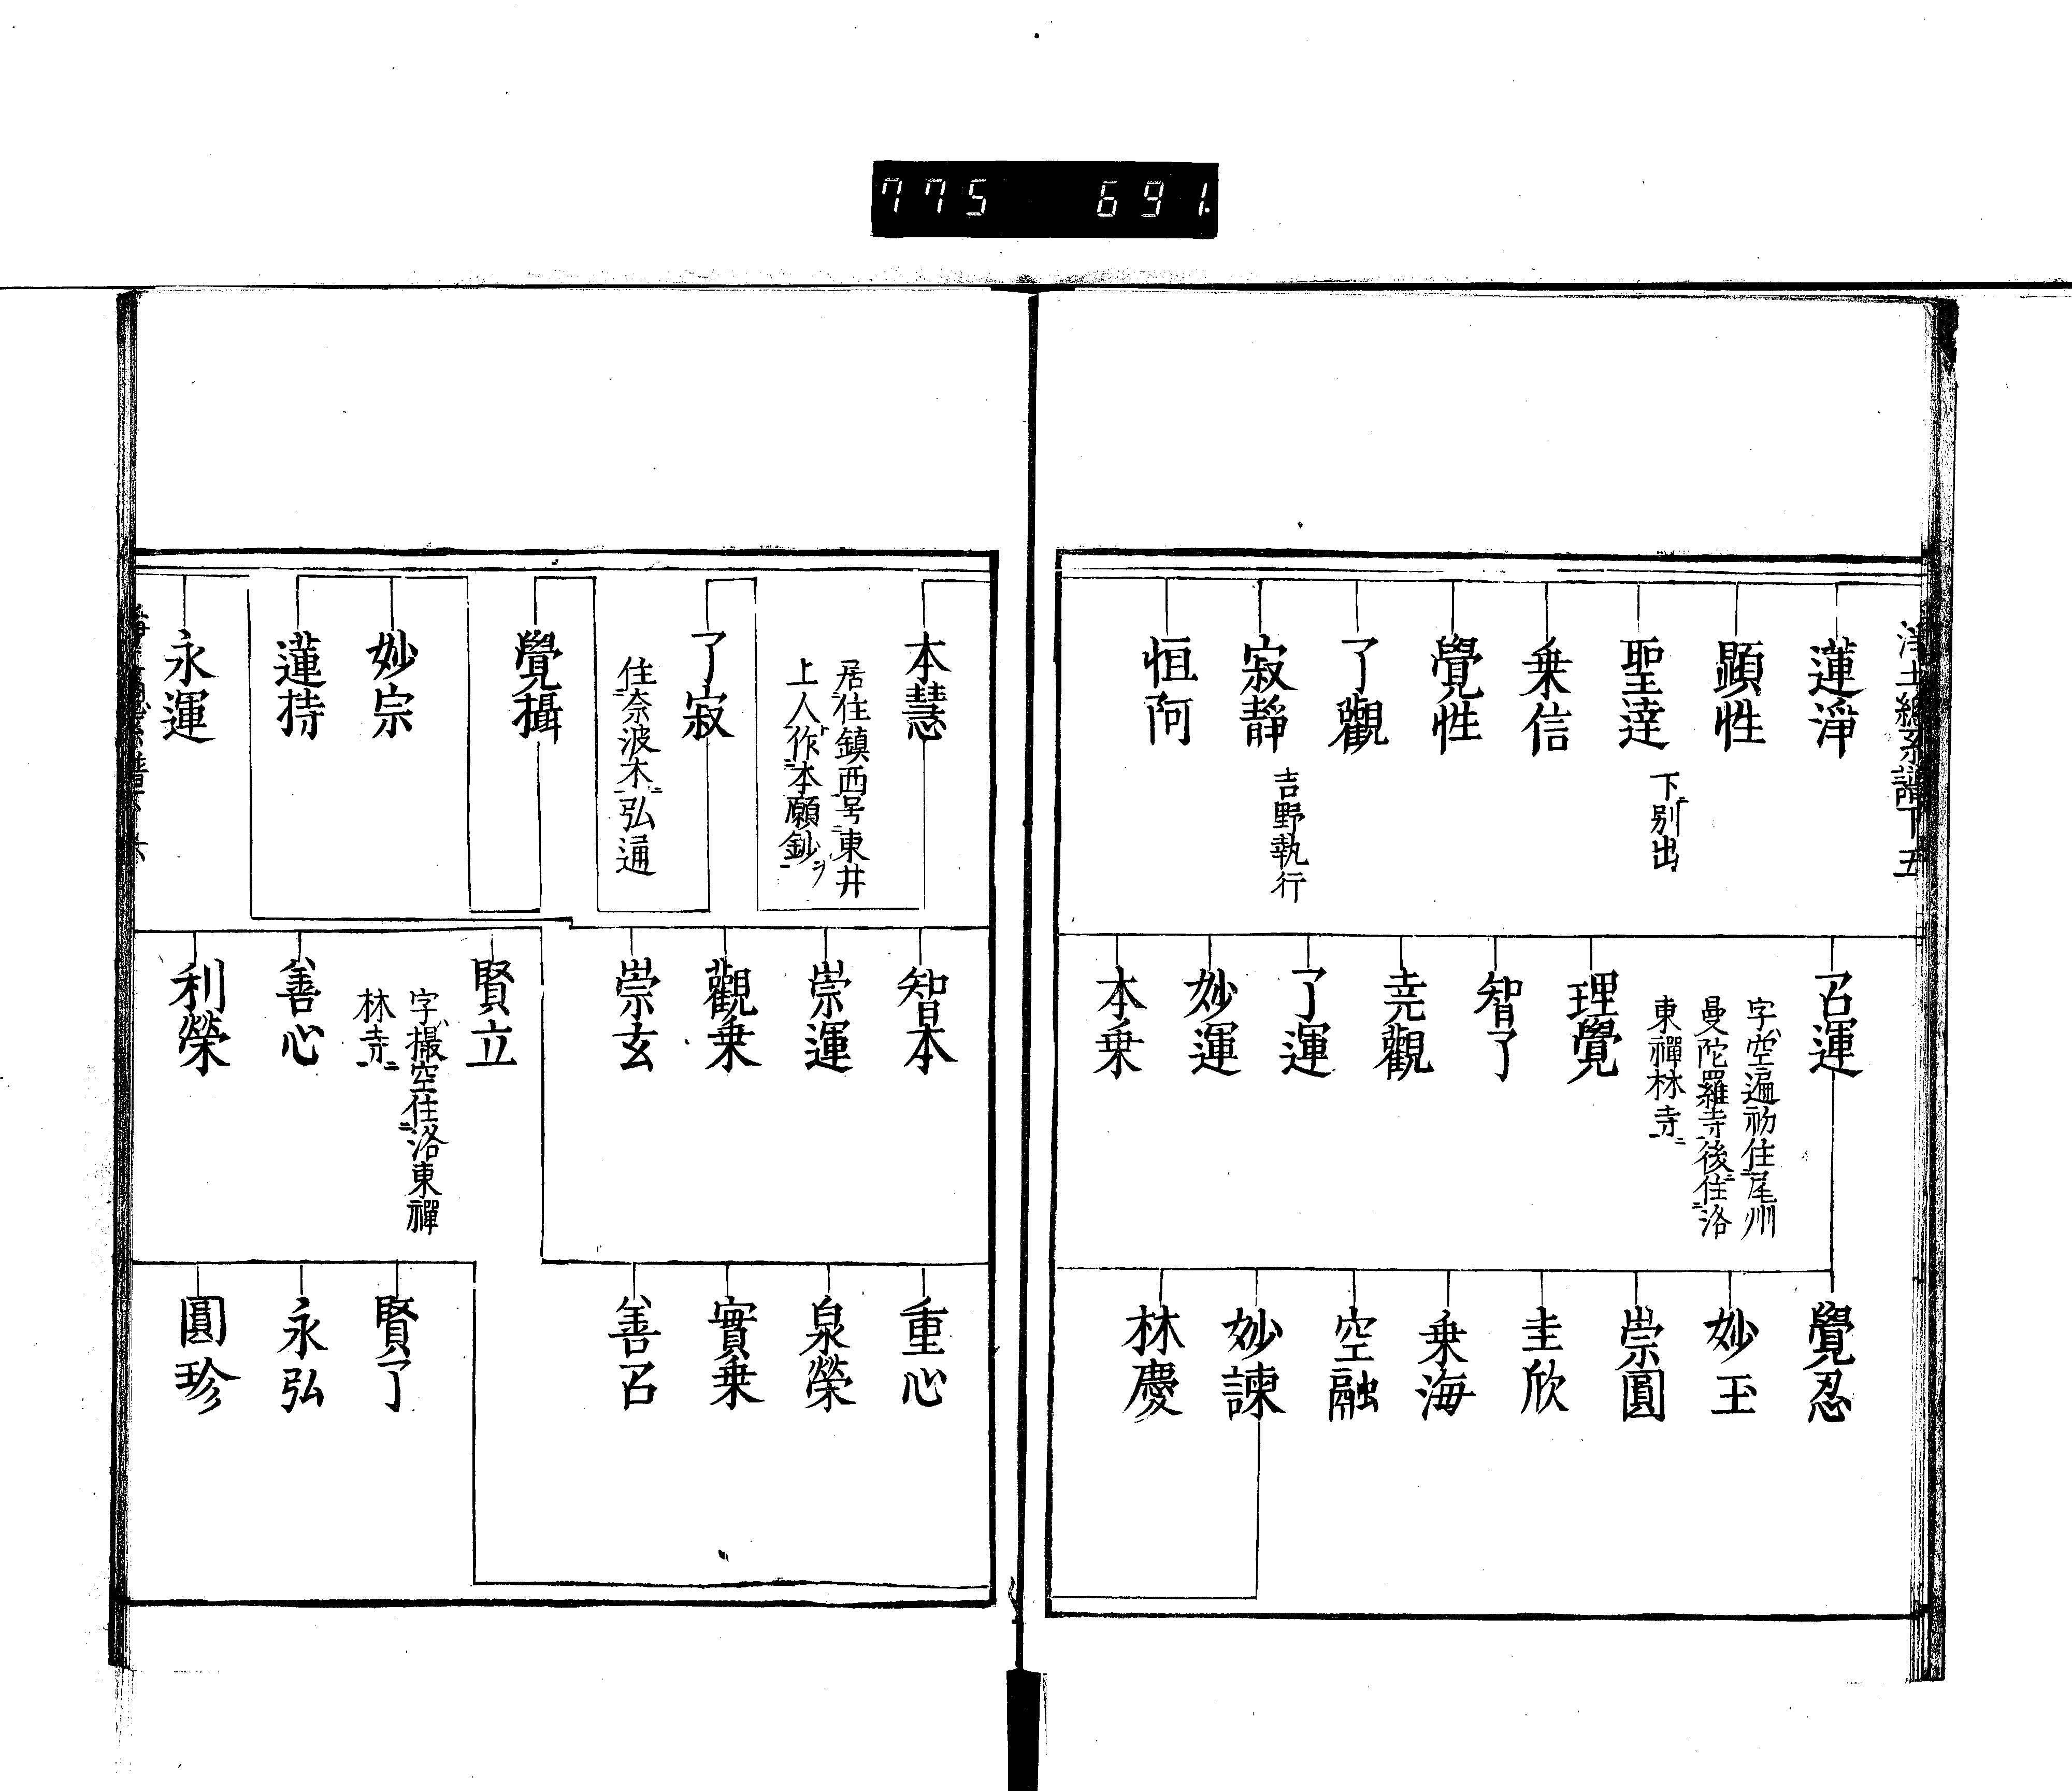 775 691.
淨土總系譜下 五
蓮淨
顯性
聖達
下別出
乗信
覺性
了觀
寂靜
吉野執行
恒阿
召運
字空遍初住尾州
曼陀羅寺後住洛
東禪林寺
理覺
智了
尭觀
了運
妙運
本乗
覺忍
妙玉
崇圓
圭欣
乗海
空融
妙諫
林慶
本慧
居住鎮西号東井
上人作本願鈔ヲ
了寂
住奈波木弘通
覺攝
妙宗
蓮持
永運
智本
崇運
觀乗
崇玄
賢立
字撮空住洛東禪
林寺
善心
利榮
重心
泉榮
實乗
善召
賢了
永弘
圓珍